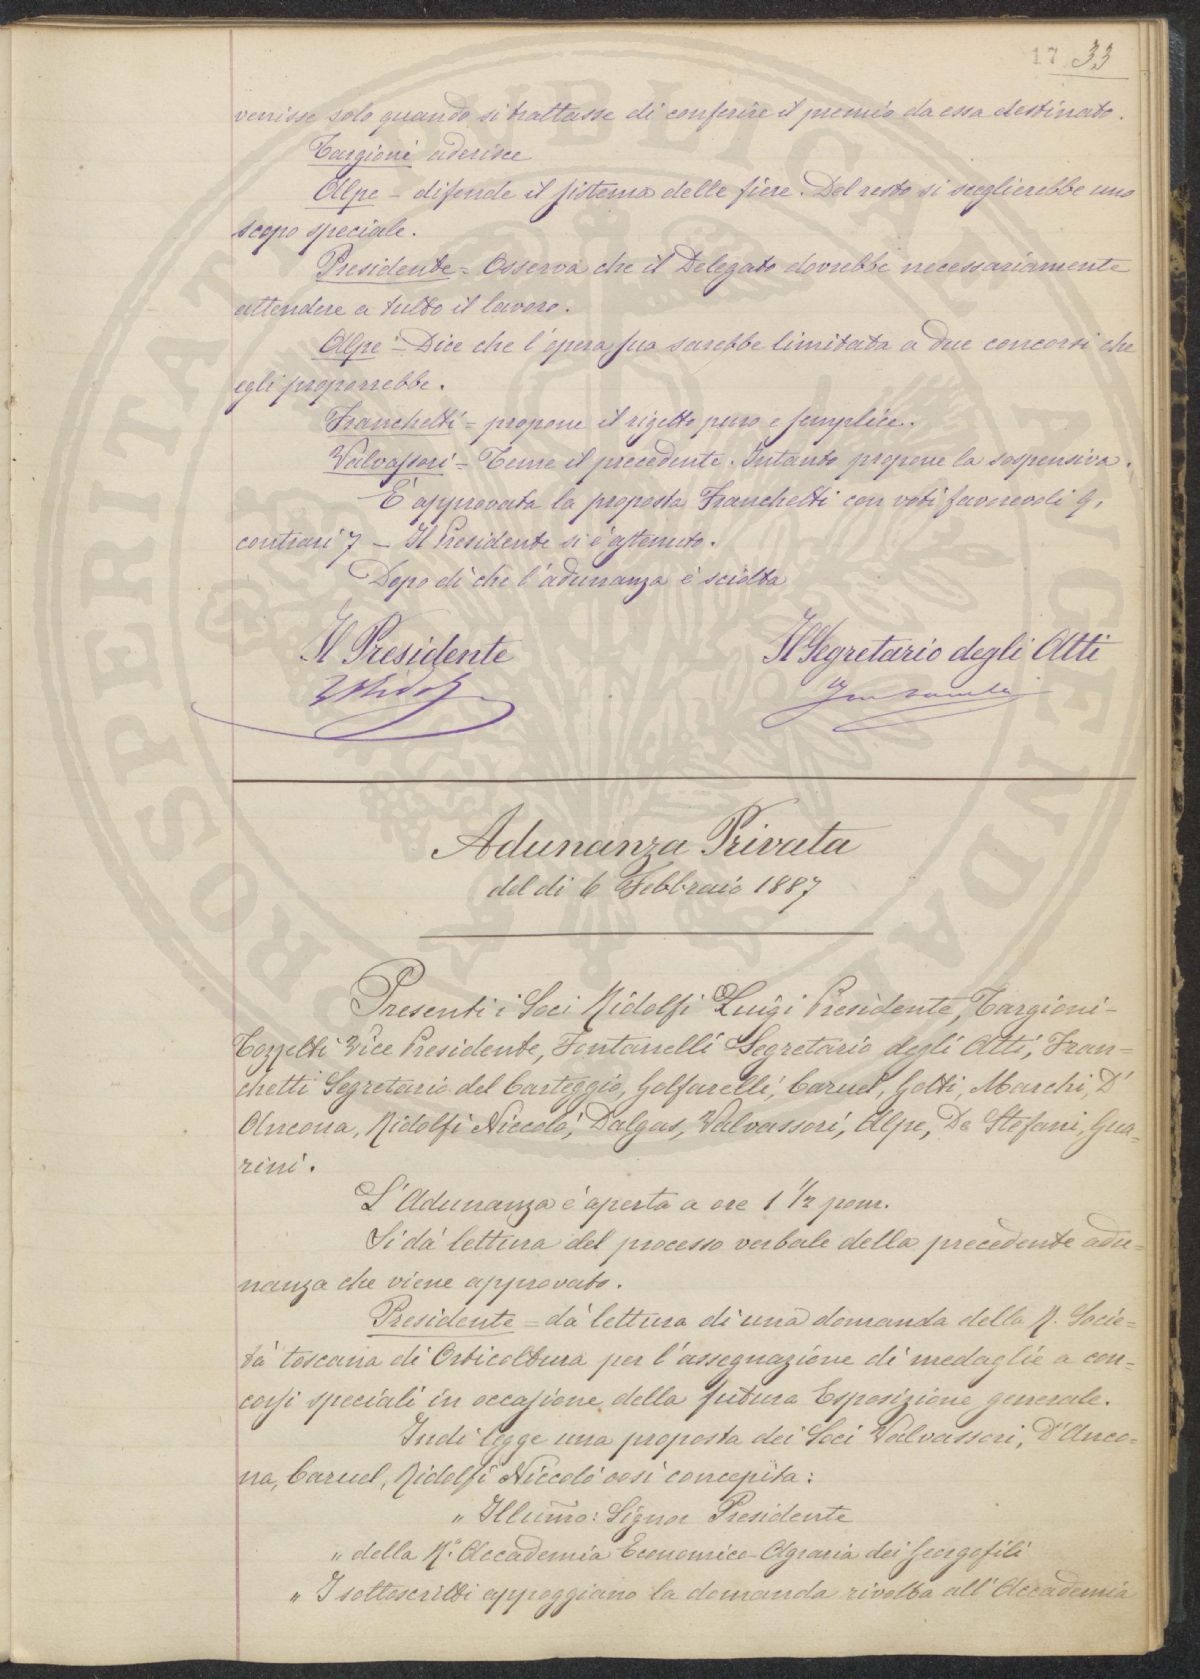 17 33
venisse solo quando si trattasse di conferire il premio da essa destinato.
Targioni aderisce
Alpe - difende il sistema delle fiere. Del resto si sceglierebbe uno
scopo speciale.
Presidente = Osserva che il Delegato dovrebbe necessariamente
attendere a tutto il lavoro.
Alpe = Dice che l'opera sua sarebbe limitata a due concorsi che
egli proporrebbe.
Franchetti = propone il rigetto puro e semplice.
Valvassori = Teme il precedente. Intanto propone la sospensiva.
È approvata la proposta Franchetti con voti favorevoli 9,
contrari 7 - Il Presidente si è astenuto.
Dopo di che l'adunanza è sciolta
Il Presidente Il Segretario degli Atti
Adunanza Privata
del di 6 Febbraio 1887
Presenti i Soci Ridolfi Luigi Presidente, Targioni-
Tozzetti Vice Presidente, Fontanelli Segretario degli Atti, Fran=
chetti Segretario del Carteggio, Golfarelli, Caruel, Gotti, Marchi, D'
Ancona, Ridolfi Niccolò, Dalgas, Valvassori, Alpe, De Stefani, Gua=
rini.
L'Adunanza è aperta a ore 1 1/2 pom.
Si dà lettura del processo verbale della precedente adu=
nanza che viene approvato.
Presidente = dà lettura di una domanda della R. Socie=
tà toscana di Orticoltura per l'assegnazione di medaglie a con=
corsi speciali in occasione della futura Esposizione generale.
Indi legge una proposta dei Soci Valvassori, D'Anco=
na, Caruel, Ridolfi Niccolò così concepita:
" Illumo: Signor Presidente
" della R.a Accademia Economico-Agraria dei Georgofili
" I sottoscritti appoggiano la domanda rivolta all'Accademia
PROSPERITATI PUBLICAE AUGENDAE